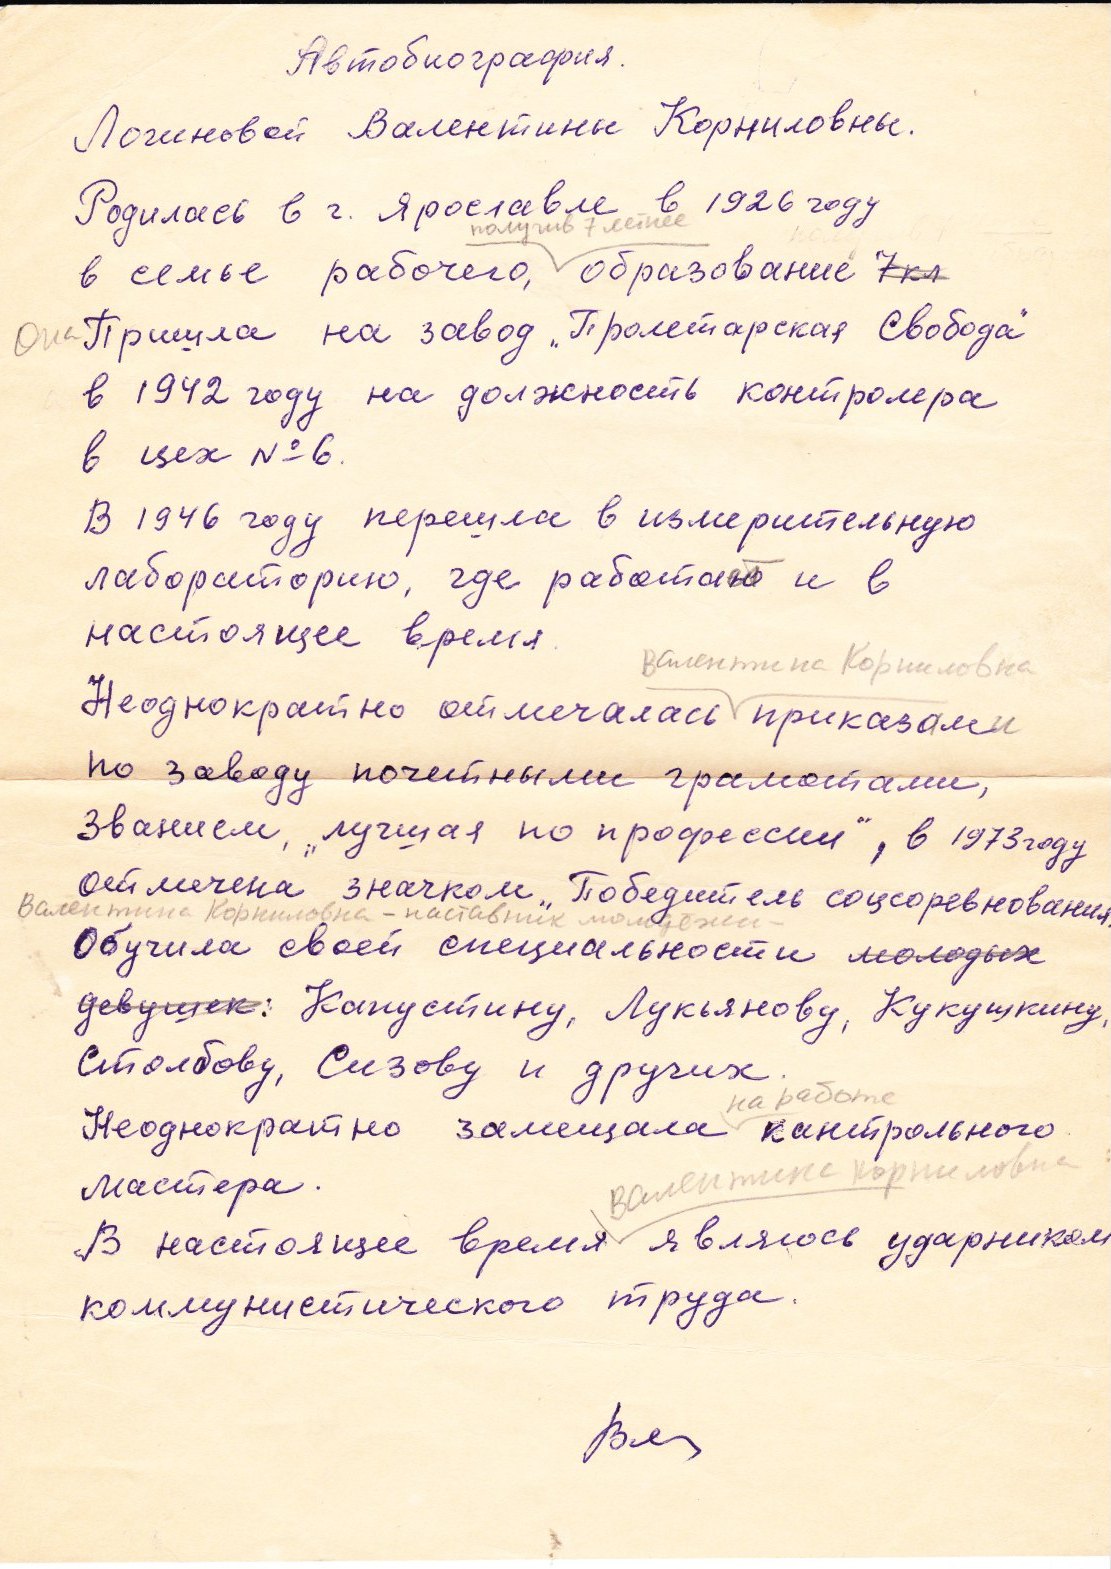 Автобиография.
Логиновой Валентины Корниловны.
Родилась в г. Ярославле в 1926 году
получив 7 летнее
в семье рабочего, образование 7кл
Она Пришла на завод „Пролетарская Свобода"
в 1942 году на должность контролера
в цех №6.
В 1946 году перешла в измерительную
лабораторию, где работаю и в
настоящее время.
Валентина Корниловна
Неоднократно отмечалась приказами
по заводу почетными грамотами,
званием, „лучшая по профессии", в 1973 году
отмечена значком „Победитель соцсоревнования.
Валентина Корниловна – наставник молодежи –
Обучила своей специальности молодых
девушек: Капустину, Лукьянову, Кукушкину,
Столбову, Сизову и других.
на работе
Неоднократно замещала кантрольного
мастера.
Валентина Корниловна
В настоящее время являюсь ударником
коммунистического труда.